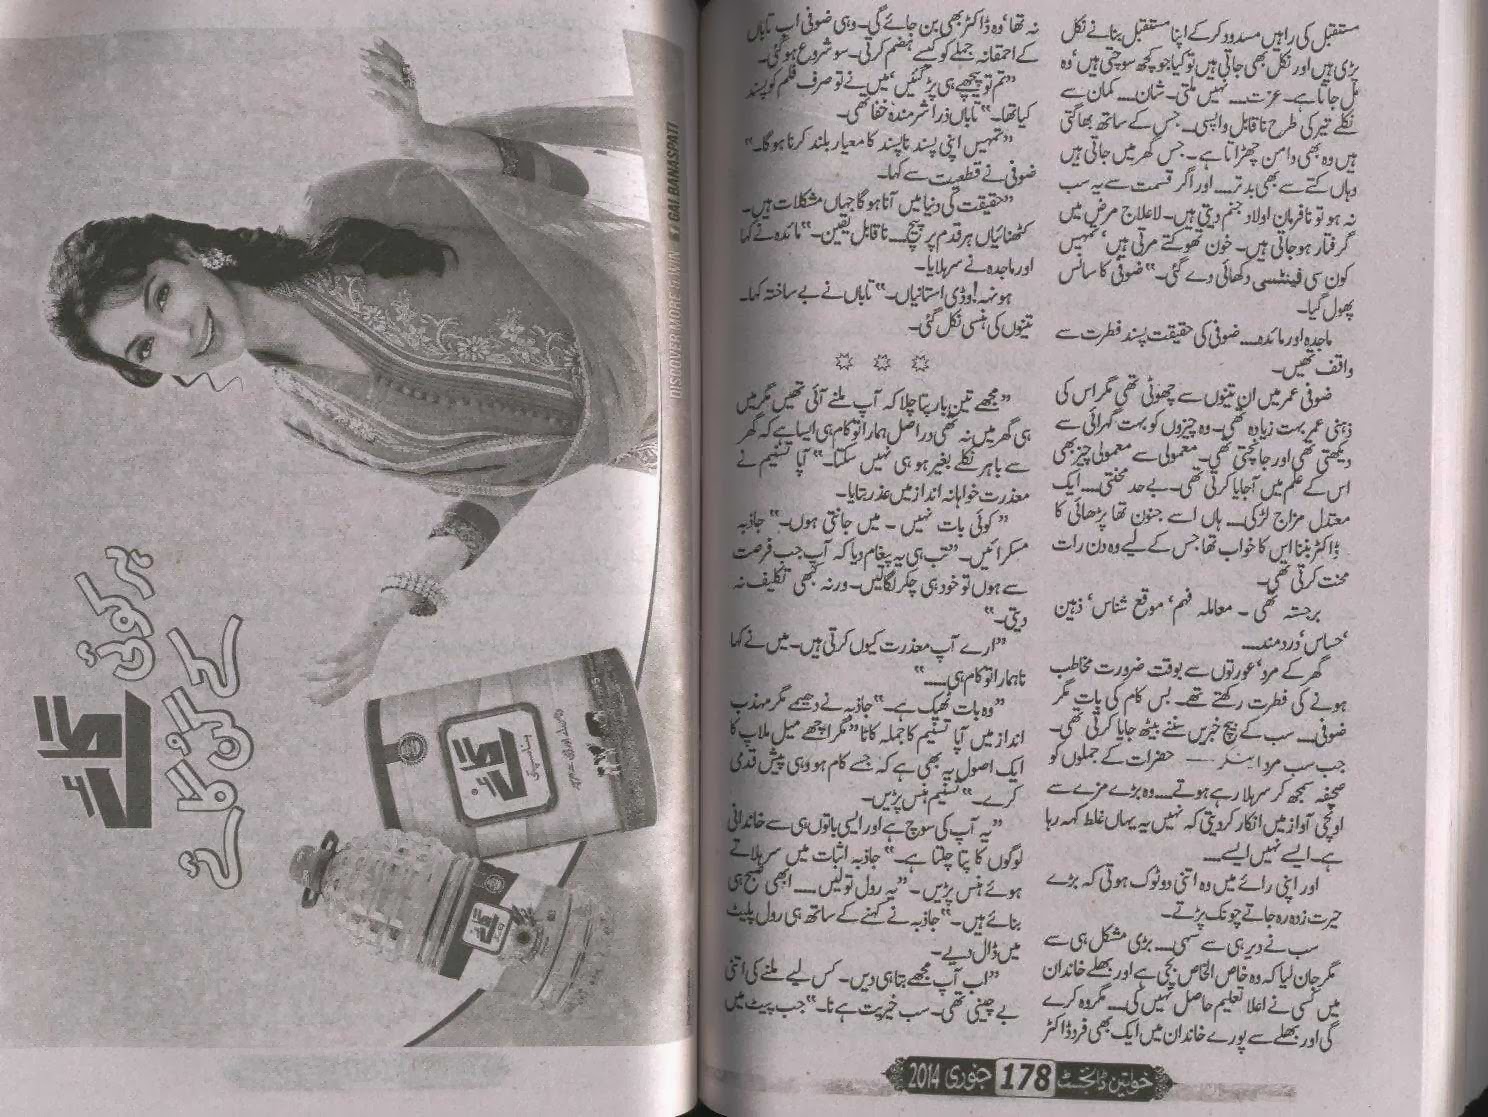 مستقبل کی راہیں مسدود کر کے اپنا مستقبل بنانے نکل
پڑی ہیں اور نکل بھی جاتی ہیں تو کیا جو کچھ سوچتی ہیں‘ وہ
مل جاتا ہے۔ عزت۔۔۔۔ نہیں ملتی۔ شان۔۔۔۔ کمان سے
نکلے تیر کی طرح ناقابل واپسی۔۔۔۔ جس کے ساتھ بھاگتی
ہیں وہ بھی دامن چھڑاتا ہے۔ جس گھر میں جاتی ہیں
وہاں کتے سے بھی بدتر۔۔۔۔ اور اگر قسمت سے یہ سب
نہ ہو تو نافرمان اولاد جنم دیتی ہیں۔ لاعلاج مرض میں
گرفتار ہو جاتی ہیں۔ خون تھوکتے مرتی ہیں‘ تمہیں
کون سی فینٹسی دکھائی دے گئی۔“ ضوفی کا سانس
پھول گیا۔
ماجدہ اور مائدہ۔۔۔۔ ضوفی کی حقیقت پسند فطرت سے
واقف تھیں۔
ضوفی عمر میں ان تینوں سے چھوٹی تھی مگر اس کی
ذہنی عمر بہت زیادہ تھی۔ وہ چیزوں کو بہت گہرائی سے
دیکھتی تھی اور جانچتی تھی۔ معمولی سے معمولی چیز بھی
اس کے علم میں آجایا کرتی تھی۔ بے حد محنتی۔۔۔۔ ایک
معتدل مزاج لڑکی۔۔۔۔ ہاں اسے جنون تھا پڑھائی کا
ڈاکٹر بننا اس کا خواب تھا جس کے لیے وہ دن رات
محنت کرتی تھی۔
برجستہ تھی۔ معاملہ فہم‘ موقع شناس‘ ذہین
‘حساس‘ دردمند۔۔۔۔
گھر کے مرد‘ عورتوں سے بوقت ضرورت مخاطب
ہونے کی فطرت رکھتے تھے۔ بس کام کی بات مگر
ضوفی۔۔۔۔ سب کے بیچ خبریں سننے بیٹھ جایا کرتی تھی۔
جب سب مرد اینکر۔۔۔۔ حضرات کے جملوں کو
صحیفہ سمجھ کر سر ہلا رہے ہوتے۔۔۔۔ وہ بڑے مزے سے
اونچی آواز میں انکار کر دیتی کہ نہیں یہ یہاں غلط کہہ رہا
ہے۔ ایسے نہیں ایسے۔۔۔۔
اور اپنی رائے میں وہ اتنی دو ٹوک ہوتی کہ بڑے
حیرت زدہ رہ جاتے چونک پڑتے۔
سب نے دیر ہی سے سہی۔۔۔۔ بڑی مشکل ہی سے
مگر جان لیا کہ وہ خاص الخاص بچی ہے اور بھلے خاندان
میں کسی نے اعلا تعلیم حاصل نہیں کی۔۔۔۔ مگر وہ کرے
گی اور بھلے سے پورے خاندان میں ایک بھی فرد ڈاکٹر
نہ تھا‘ وہ ڈاکٹر بھی بن جائے گی۔ وہی ضوفی اب تاباں
کے احمقانہ جملے کو کیسے ہضم کرتی۔ سو شروع ہو گئی۔
”تم تو پیچھے ہی پڑ گئیں‘ میں نے تو صرف فلم کو پسند
کیا تھا۔“ تاباں ذرا شرمندہ خفا تھی۔
”تمہیں اپنی پسند ناپسند کا معیار بلند کرنا ہوگا۔“
ضوفی نے قطعیت سے کہا۔
”حقیقت کی دنیا میں آنا ہوگا جہاں مشکلات ہیں۔
کٹھنائیاں ہر قدم پر چیخ۔۔۔۔ ناقابل یقین۔“ مائدہ نے کہا
اور ماجدہ نے سر ہلایا۔
ہونہہ! وڈی استانیاں۔“ تاباں نے بے ساختہ کہا۔
تینوں کی ہنسی نکل گئی۔
”مجھے تین بار پتا چلا کہ آپ ملنے آئی تھیں مگر میں
ہی گھر میں نہ تھی دراصل ہمارا تو کام ہی ایسا ہے کہ گھر
سے باہر نکلے بغیر ہو ہی نہیں سکتا۔“ آپا تسنیم نے
معذرت خواہانہ انداز میں عذر بتایا۔
”کوئی بات نہیں۔ میں جانتی ہوں۔“ جاذبہ
مسکرائیں۔ ”تب ہی یہ پیغام دیا کہ آپ جب فرصت
سے ہوں تو خود ہی چکر لگالیں۔ ورنہ کبھی تکلیف نہ
دیتی۔“
”ارے آپ معذرت کیوں کرتی ہیں۔ میں نے کہا
نا ہمارا تو کام ہی۔۔۔۔“
”وہ بات ٹھیک ہے۔“ جاذبہ نے دھیمے مگر مہذب
انداز میں آپا تسنیم کا جملہ کاٹا ”مگر اچھے میل ملاپ کا
ایک اصول یہ بھی ہے کہ جسے کام ہو وہی پیش قدمی
کرے۔“ تسنیم ہنس پڑیں۔
”یہ آپ کی سوچ ہے اور ایسی باتوں ہی سے خاندانی
لوگوں کا پتا چلتا ہے۔“ جاذبہ اثبات میں سر ہلاتے
ہوئے ہنس پڑیں۔ ”یہ رول تو لیں۔۔۔۔ ابھی صبح ہی
بنائے ہیں۔“ جاذبہ نے کہنے کے ساتھ ہی رول پلیٹ
میں ڈال دیے۔
”اب آپ مجھے بتا ہی دیں۔ کس لیے ملنے کی اتنی
بے چینی تھی۔ سب خیریت ہے نا۔“ جب پیٹ میں
خواتین ڈائجسٹ 178 جنوری 2014
ہر کوئی
گائے
کے گُن گائے
DISCOVER MORE & WIN
GAI BANASPATI
گائے
بناسپتی
گائے